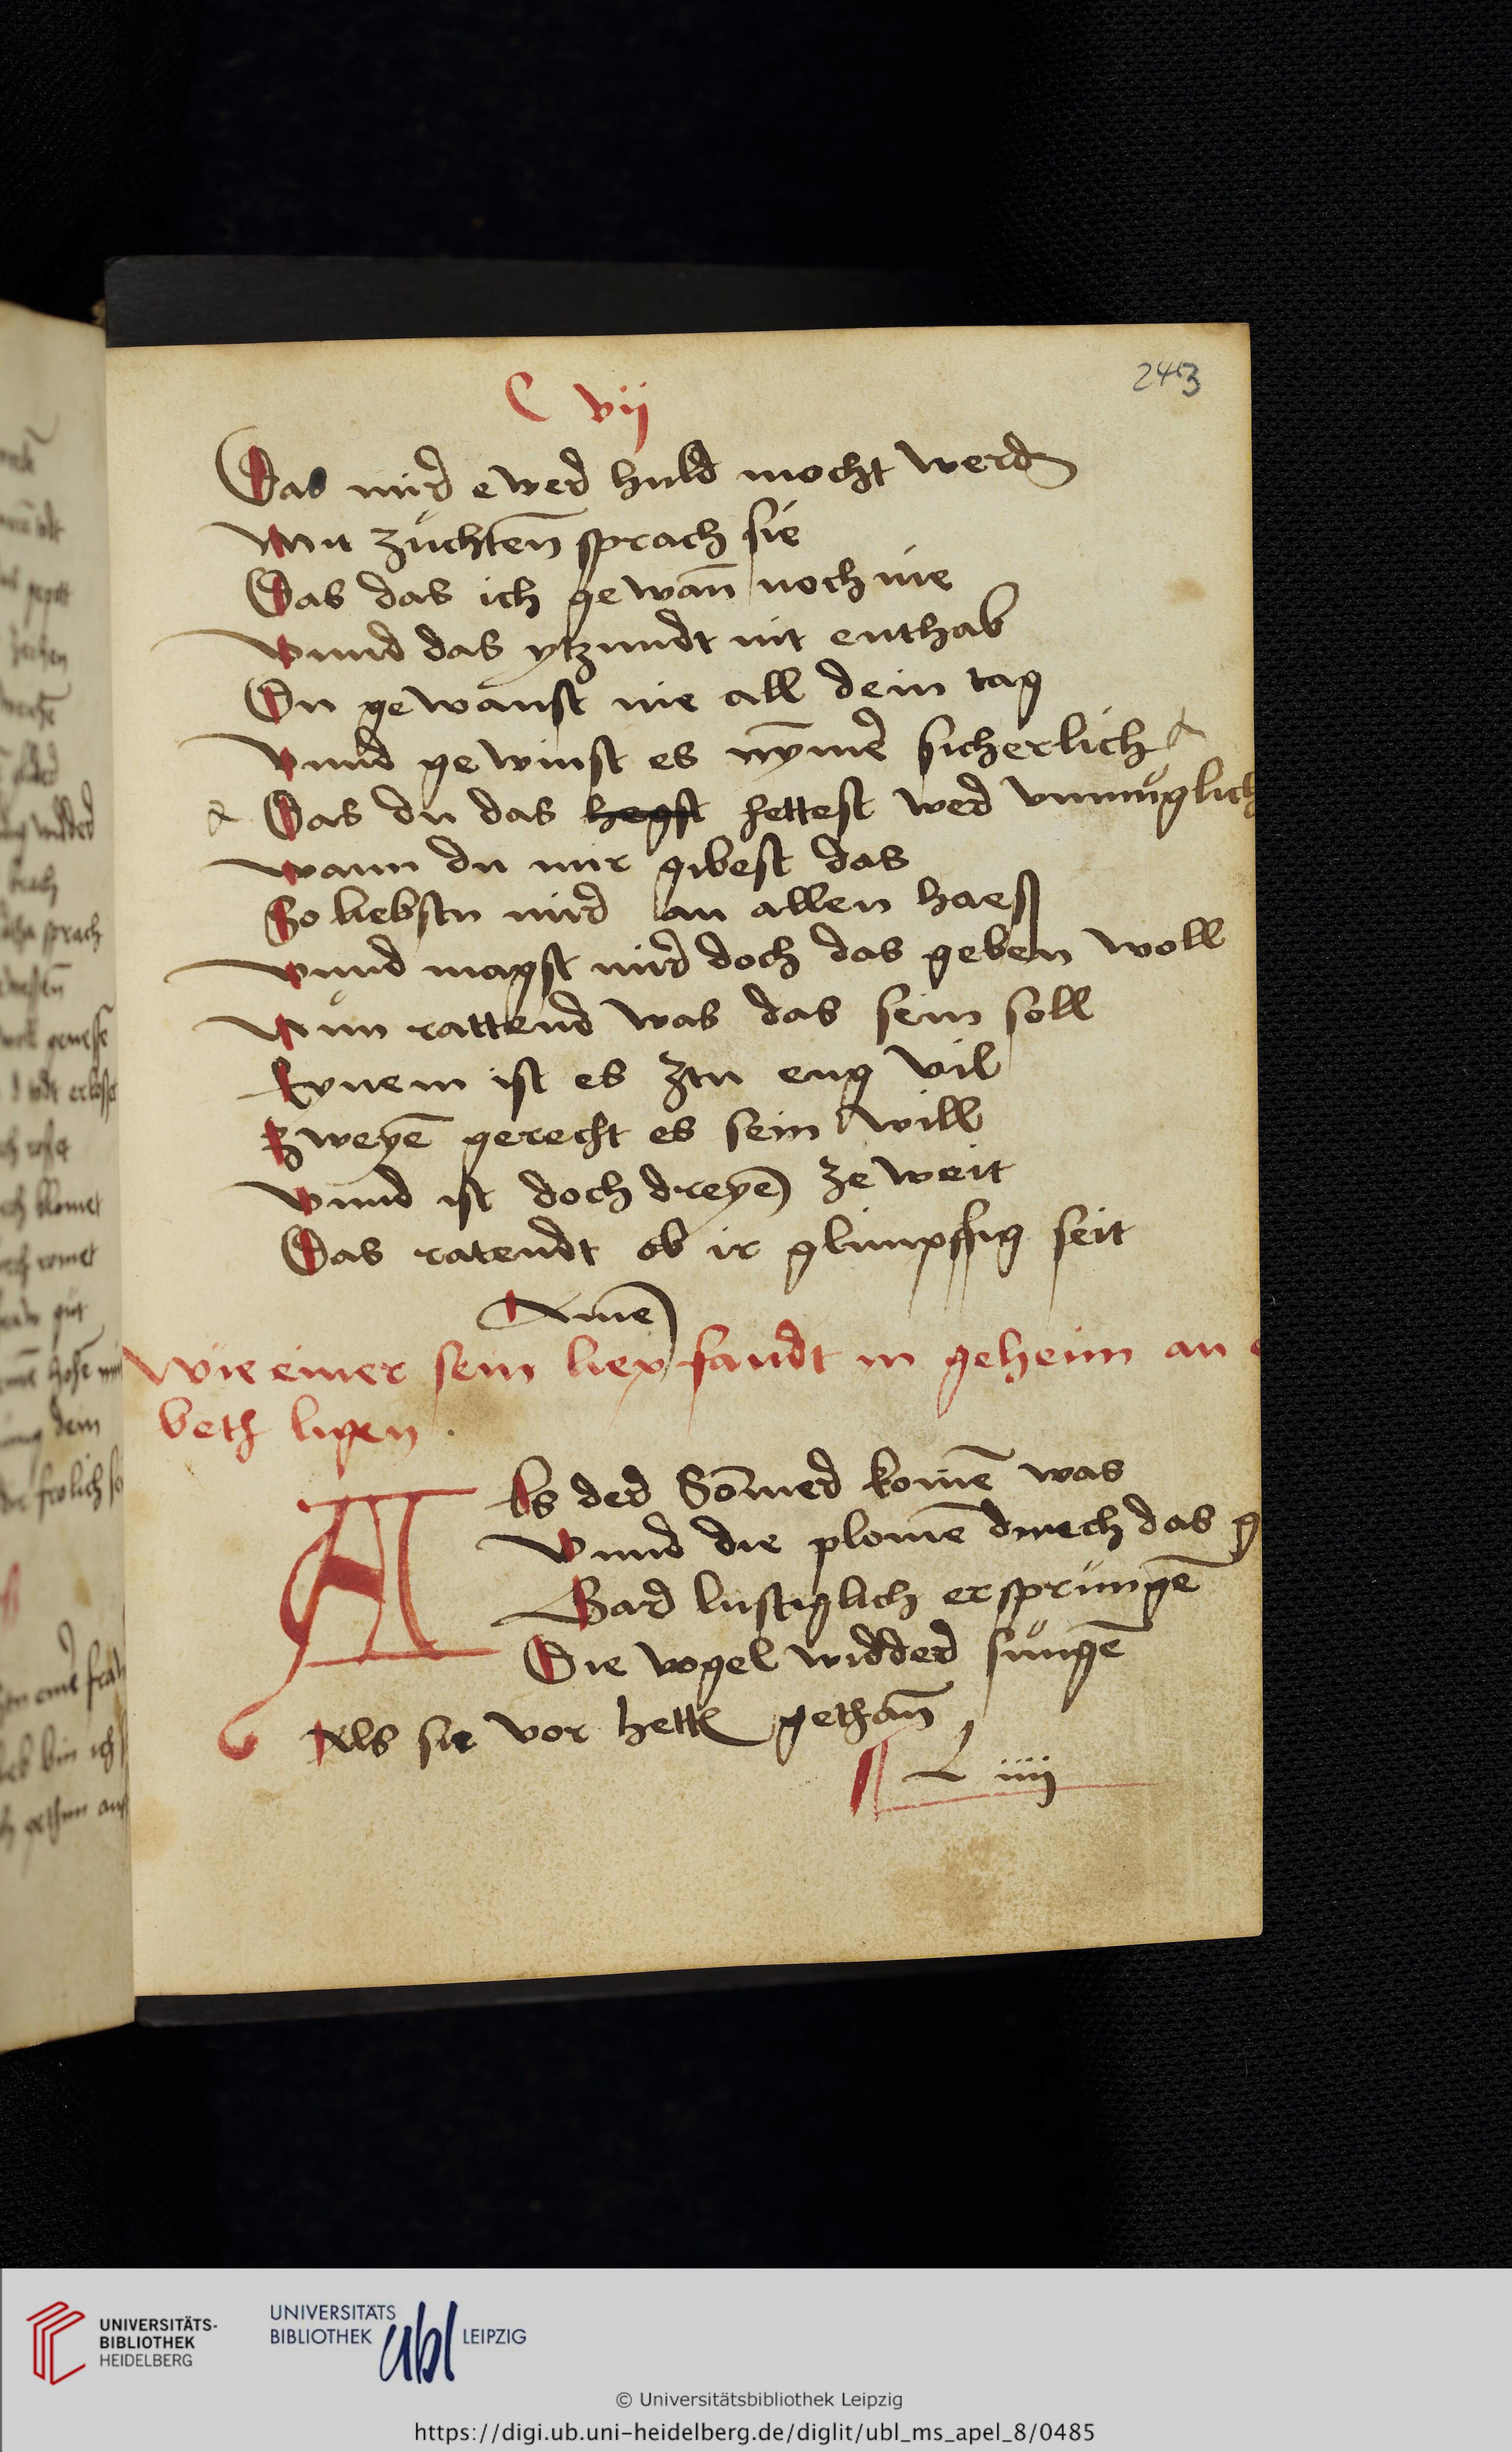 243
C vij
Das mir ewer huld mocht werden
Mit züchten̄ sprach sie
Das das ich gewan̄ noch nie
vnnd das ytzundt nit enthab
Du gewanst nie all dein tag
vnnd gewinst es nȳmer sicherlich
Das du das hegst hettest wer vnmüglich
wann du mir gibest das
So liebstu mir an allen haeß
vnnd magst mir doch das geben woll
Nůn rattend was das sein soll
Eynem ist es ztu eng vil
Zweyē gerecht es sein will
vnnd ist doch dreyen ze weit
Das ratendt ob ir glimpffig seit
Amen
Wie einer sein liep fandt in geheim an
beth ligen .
Als der Som̄er komē was
vnnd die plomē durch das g
Gar lustiglich ersprungē
Die vogel widder sůngē
Als sie vor hetten gethan̄
L iiij
UNIVERSITÄTS-
BIBLIOTHEK
HEIDELBERG
UNIVERSITÄTS
BIBLIOTHEK ubl LEIPZIG
© Universitätsbibliothek Leipzig
https://digi.ub.uni-heidelberg.de/diglit/ubl_ms_apel_8/0485